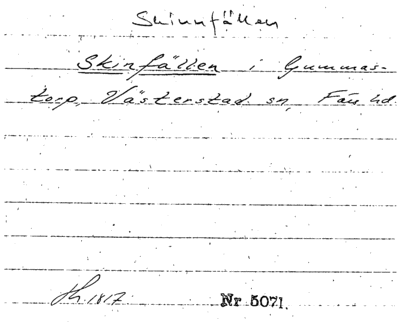 Skinnfällen
Skinfällen i Gummas-
torp, Västerstad sn, Färs hd.
1817
Nr 5071.